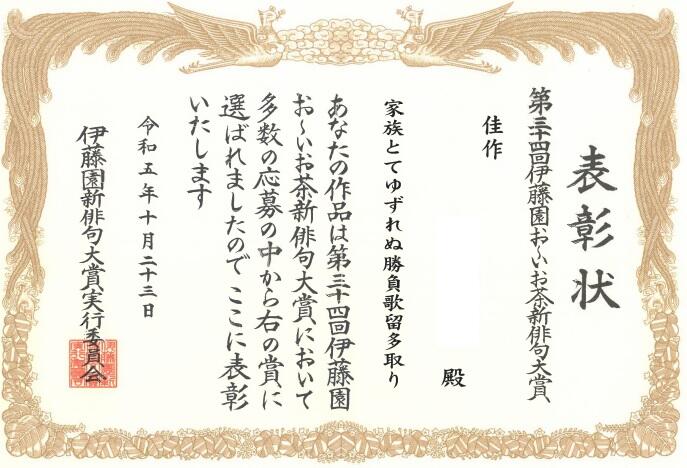 表彰状
第三十四回伊藤園お～いお茶新俳句大賞
佳作
殿
家族とてゆずれぬ勝負歌留多取り
あなたの作品は第三十四回伊藤園
お～いお茶新俳句大賞において
多数の応募の中から右の賞に
選ばれましたので ここに表彰
いたします
令和五年十月二十三日
伊藤園新俳句大賞実行委員会